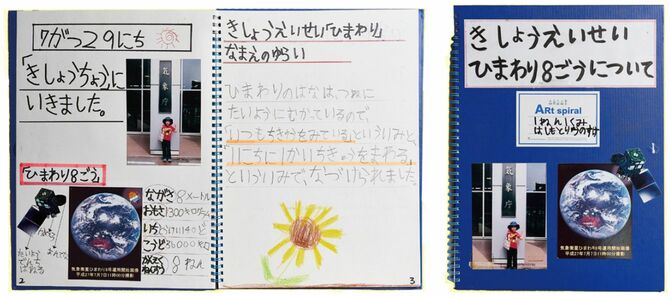 7がつ29にち
「きしょうちょう」に
いきました。
気象庁
「ひまわり8ごう」
ながさ 8メートル
おもさ 1300キログラム
いち とうけい140ど
こうど 36000キロ
8ねん
気象衛星ひまわり8号運用開始画像
平成27年7月7日11時00分撮影
2
きしょうえいせい「ひまわり」
なまえのゆらい
ひまわりのはなは、つねに
たいようにむかっているので、
「いつもちきゅうをみている」といういみと、
「1にちに1かいちきゅうをまわる」
といういみで、なづけられました。
3
きしょうえいせい
ひまわり8ごうについて
ARt spiral
1ねん1くみ
はしもとりゅうのすけ
気象庁
気象衛星ひまわり8号運用開始画像
平成27年7月7日11時00分撮影